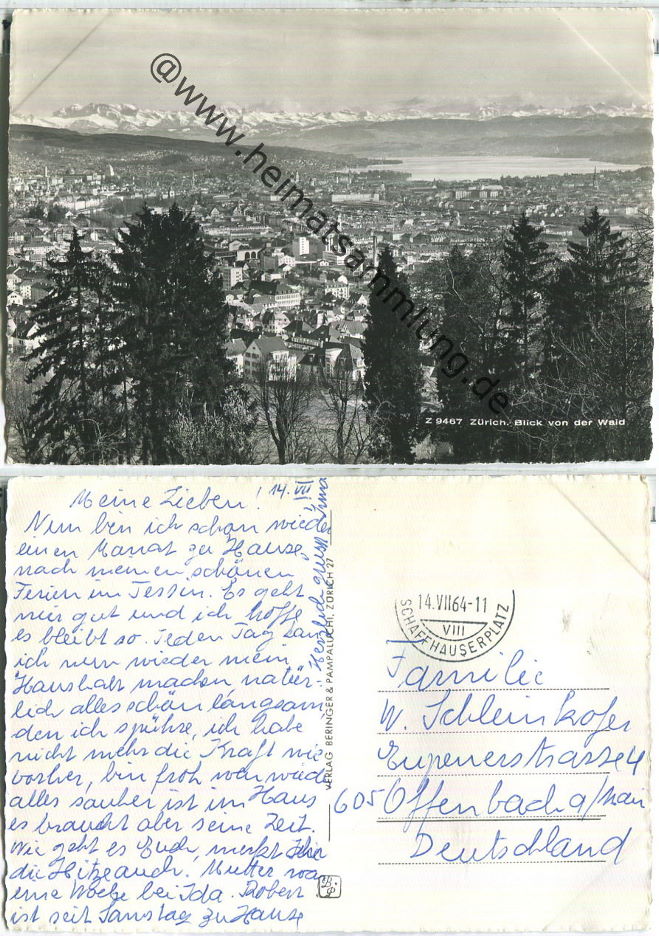 @www.heimatsammlung.de
Z 9467 Zürich. Blick von der Waid
Meine Lieben! 14. VII.
Nun bin ich schon wieder
einen Monat zu Hause
nach meinen schönen
Ferien im Tessin. Es geht
mir gut und ich hoffe
es bleibt so. Jeden Tag kan
ich nun wieder mein
Haushalt machen natür-
lich alles schön langsam
den ich spühre, ich habe
nicht mehr die Kraft wie
vorher, bin froh wen wieder
alles sauber ist im Haus
es braucht aber seine Zeit.
Wie geht es Euch, merkt Ihr
die Hitze auch. Mutter war
eine Woche bei Ida. Robert
ist seit Samstag zu Hause
Herzlich grüsst Irma
VERLAG BERINGER & PAMPALUCHI, ZÜRICH 27
B P
14.VII64-11
VIII
SCHAFFHAUSERPLATZ
Familie
W. Schleinkofer
Eupenerstrasse 4
605 Offenbach a/Main
Deutschland